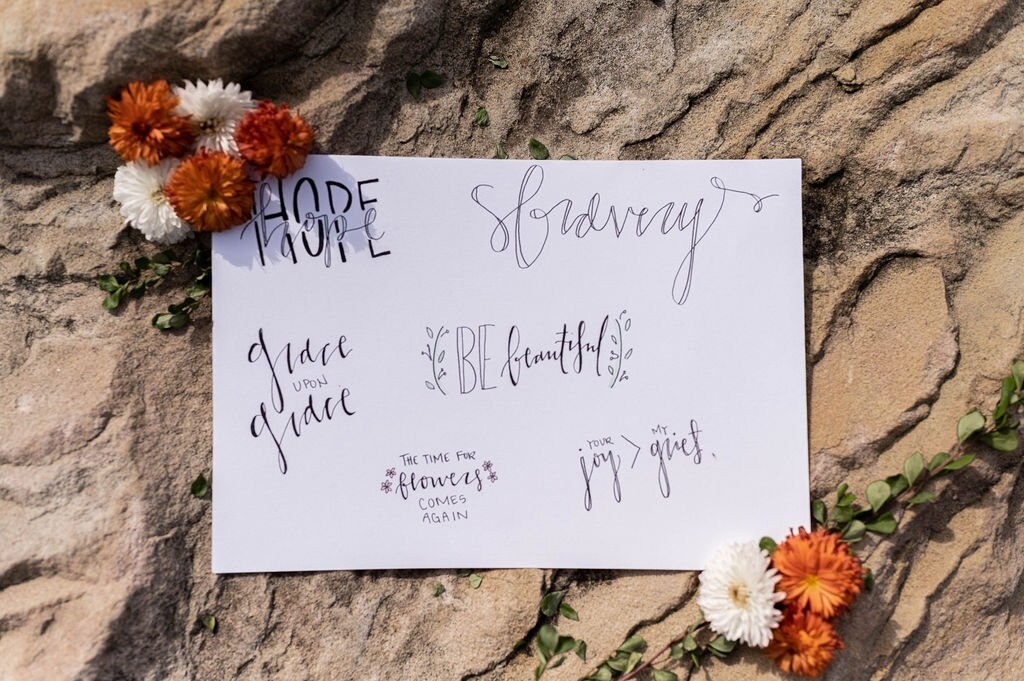 HOPE
hope
bravery
grace
UPON
grace
BE beautiful
THE TIME FOR
flowers
COMES
AGAIN
YOUR joy > MY grief.